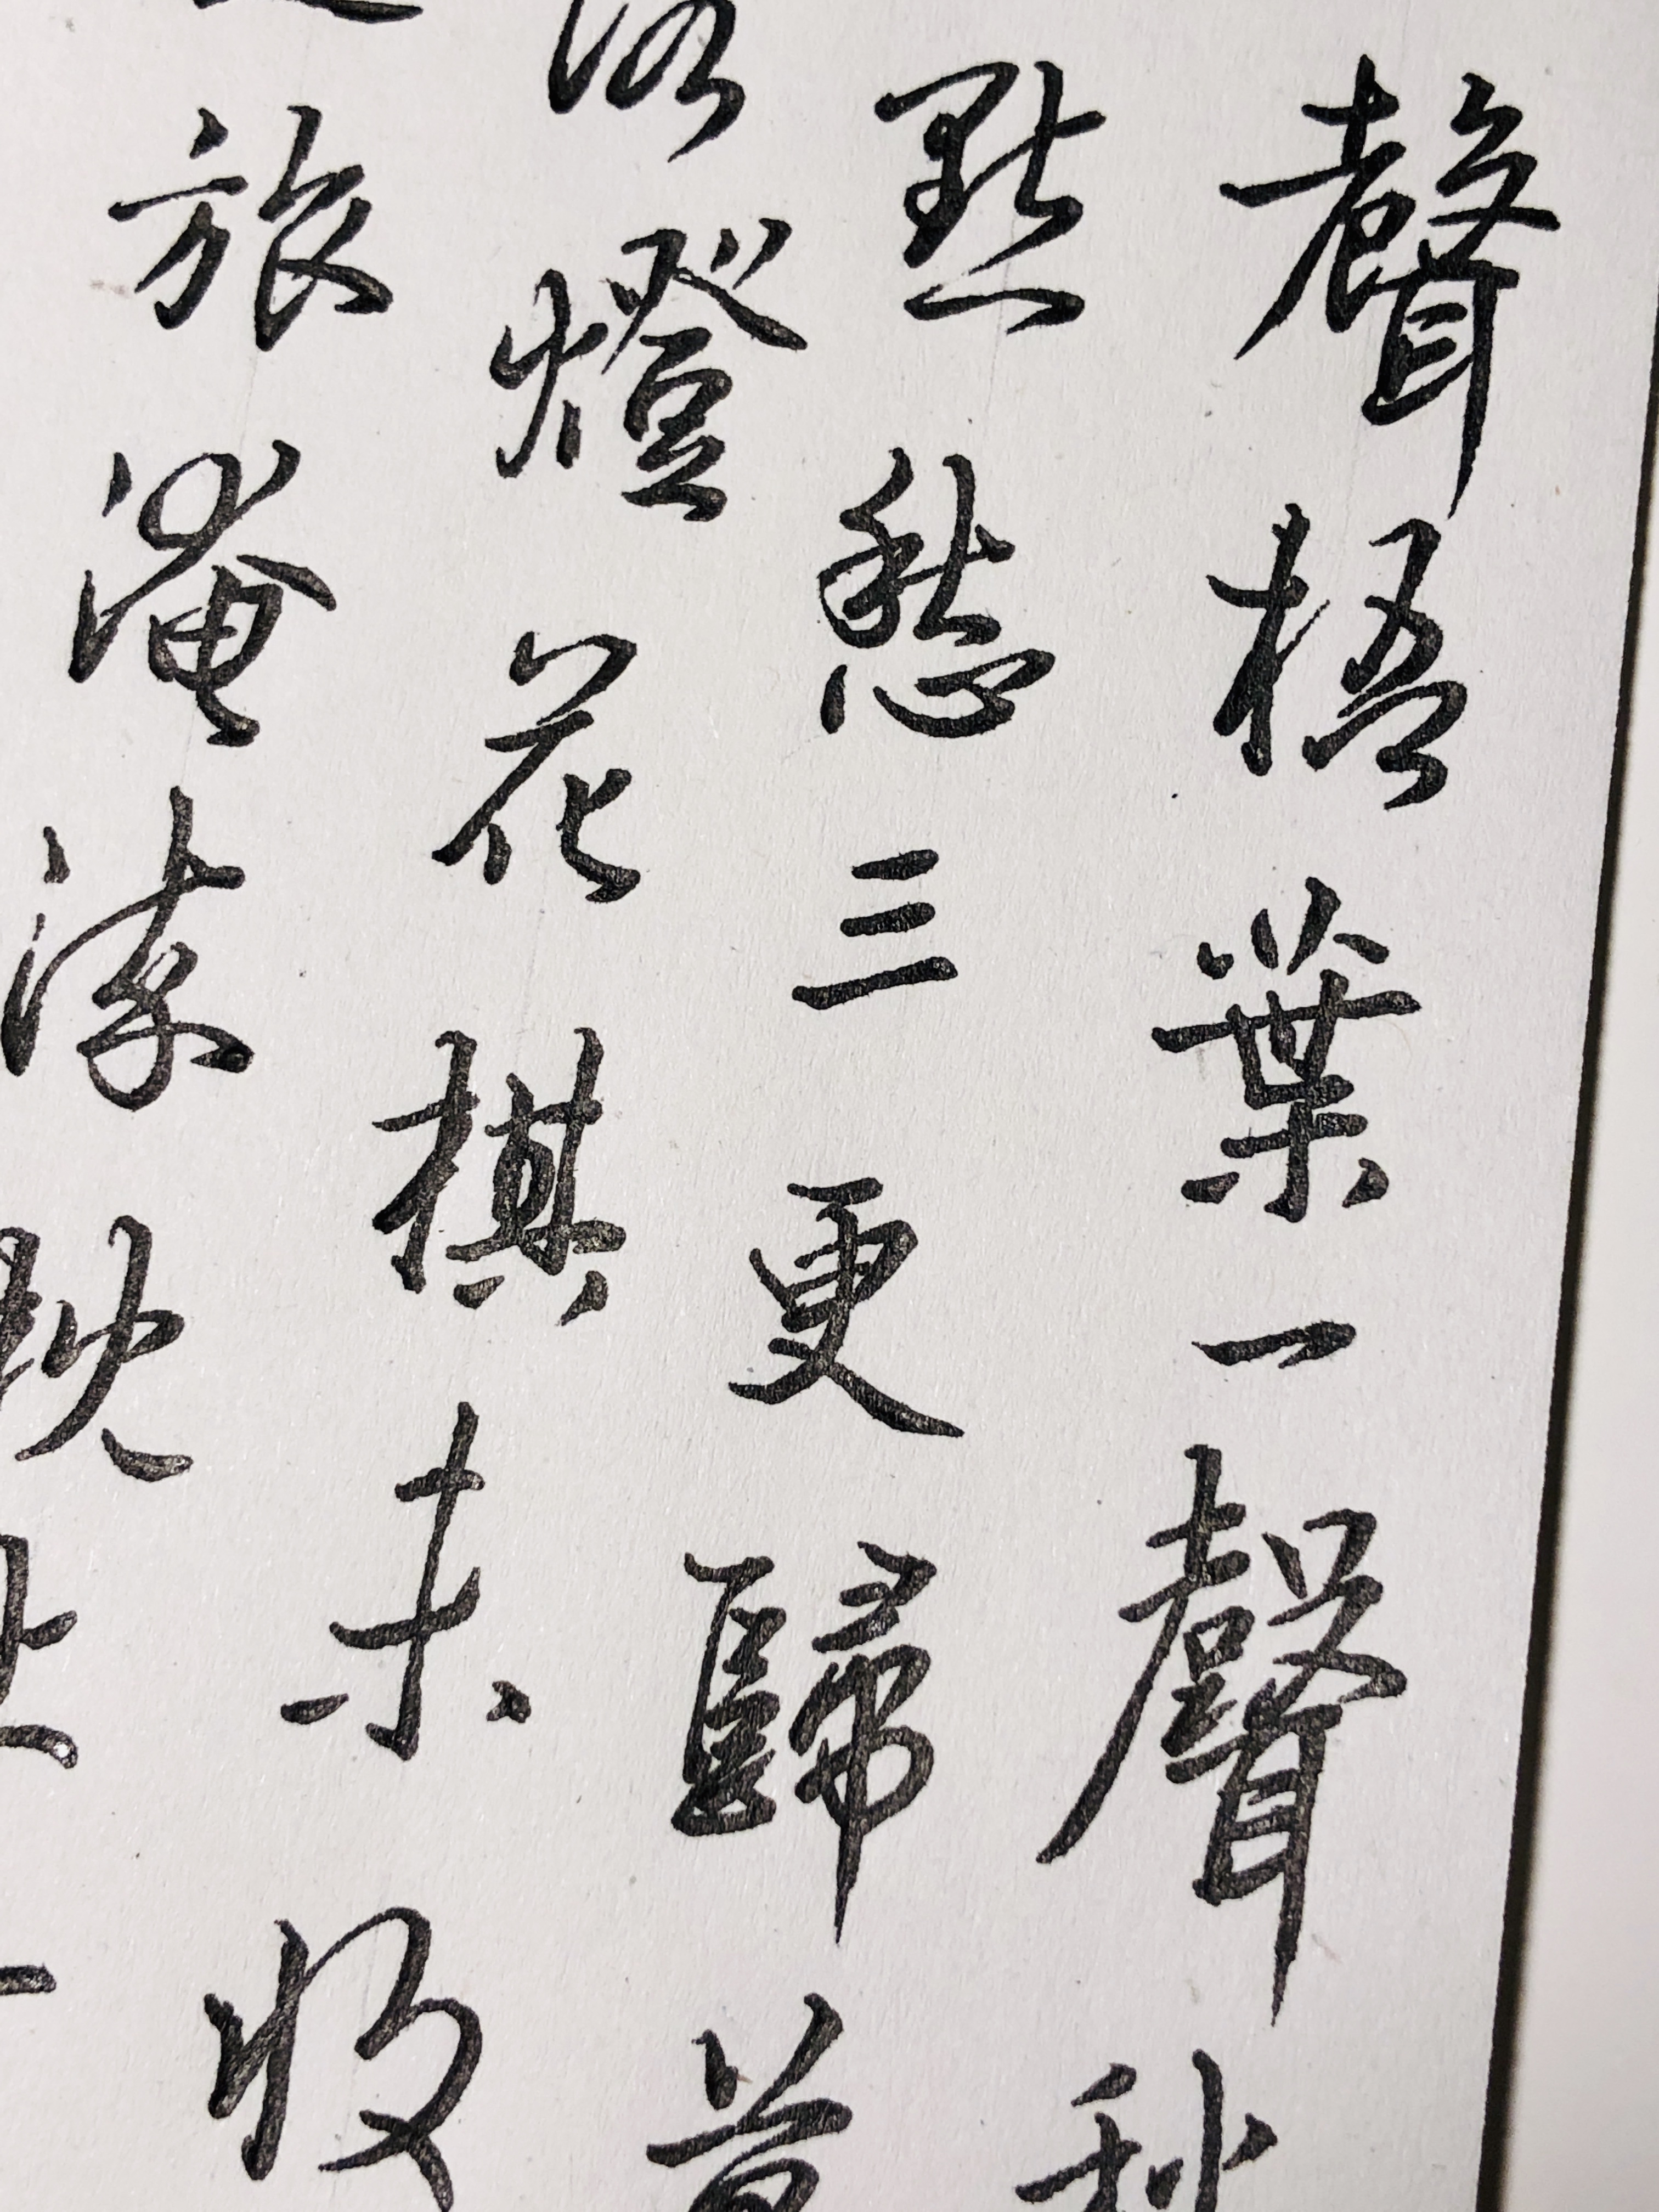 聲梧葉一聲秋
點愁三更歸夢
落燈花棋未收
旅淹凍枕